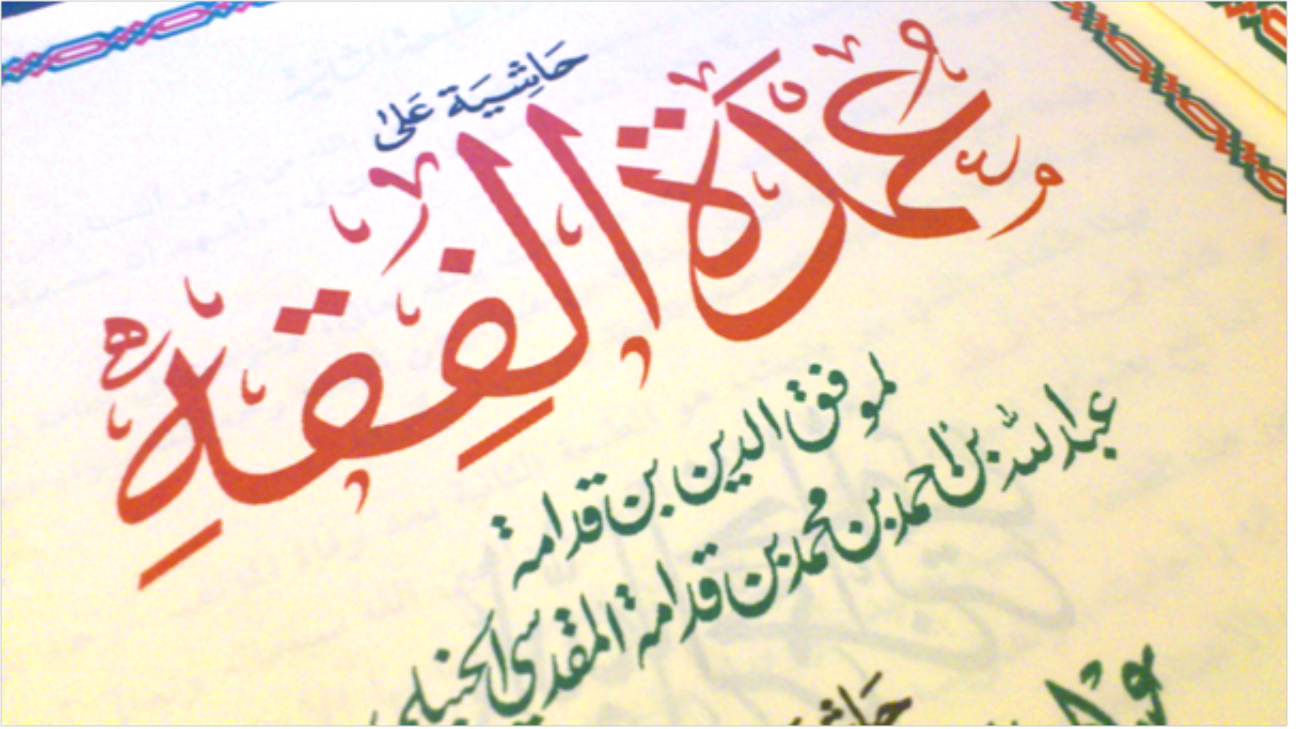 حَاشِيَة عَلىٰ
عُمْدَةُ الْفِقْهِ
لموفق الدين بن قدامة
عبد الله بن احمد بن محمد بن قدامة المقدسي الحنبلي
حاشية